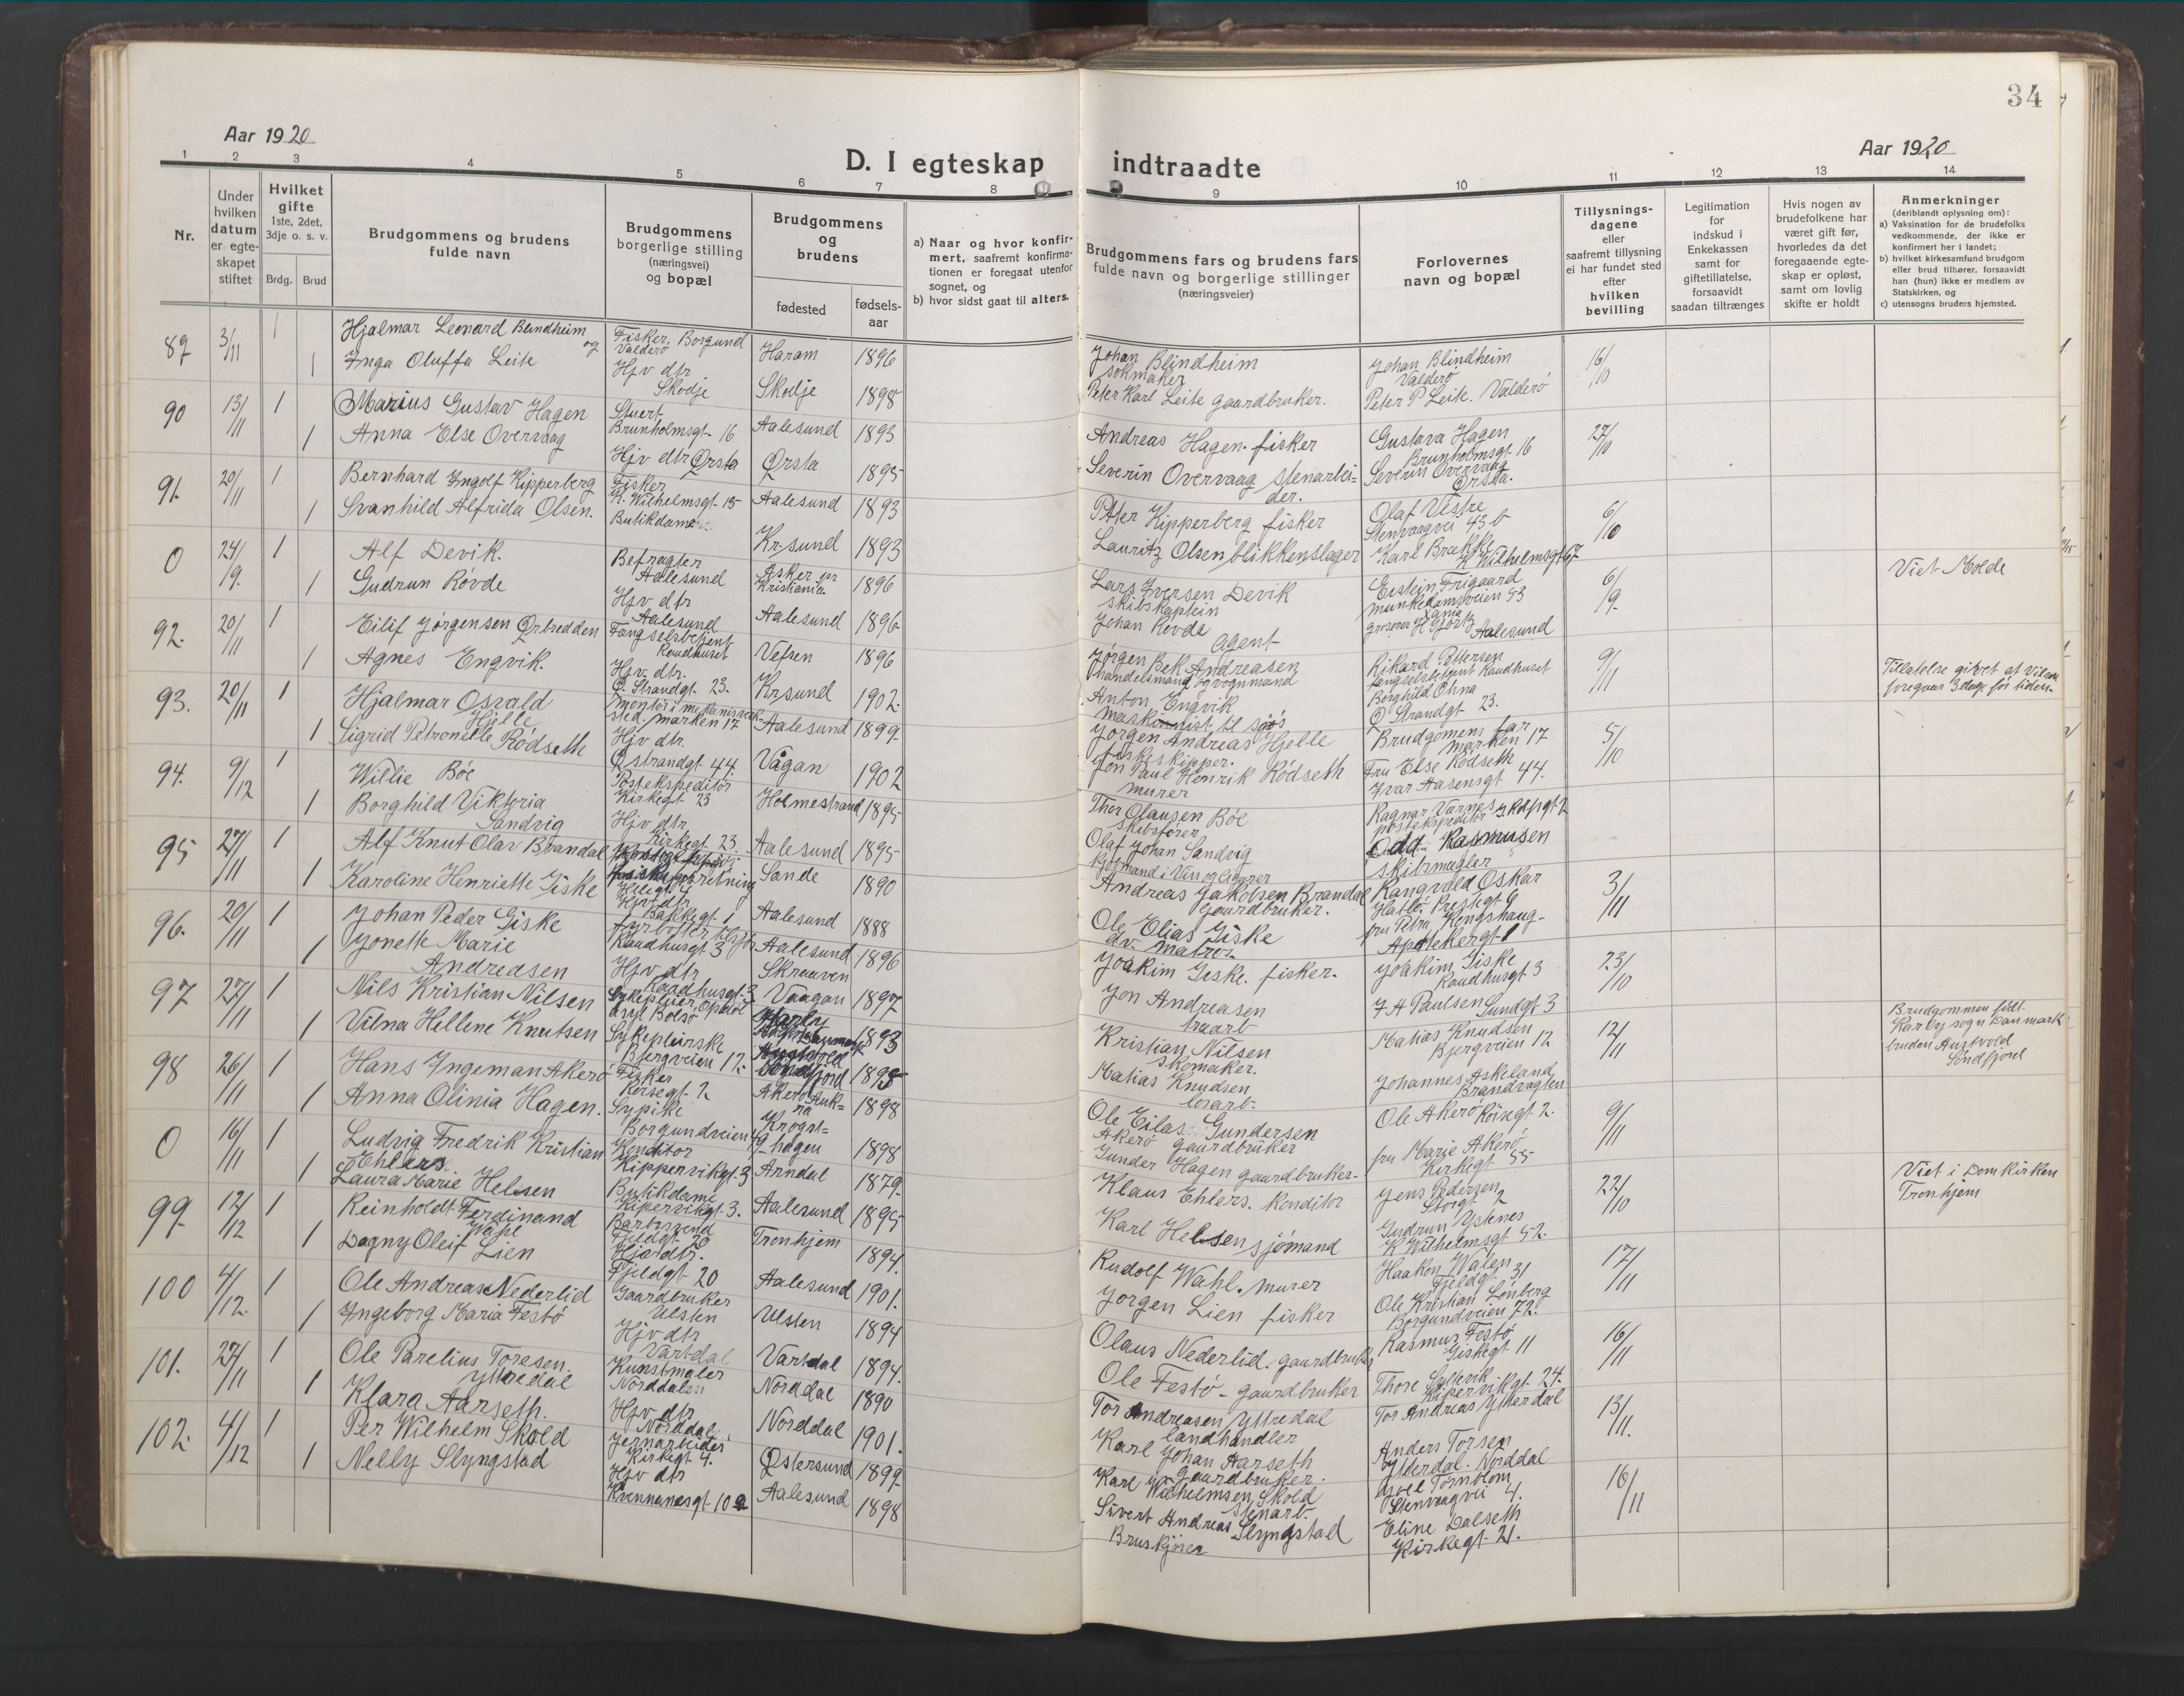 34
Aar 1920
Aar 1920
D. I egteskap indtraadte
1 2 3 4 5 6 7 8 9 10 11 12 13 14
Nr.
Under
hvilken
datum
er egte-
skapet
stiftet
Hvilket
gifte
1ste, 2det,
3dje o. s. v.
Brdg. Brud
Brudgommens og brudens
fulde navn
Brudgommens
borgerlige stilling
(næringsvei)
og bopæl
Brudgommens
og
brudens
fødested
fødsels-
aar
a) Naar og hvor konfir-
mert, saafremt konfirma-
tionen er foregaat utenfor
sognet, og
b) hvor sidst gaat til alters.
Brudgommens fars og brudens fars
fulde navn og borgerlige stillinger
(næringsveier)
Forlovernes
navn og bopæl
Tillysnings-
dagene
eller
saafremt tillysning
ei har fundet sted
efter
hvilken
bevilling
Legitimation
for
indskud i
Enkekassen
samt for
giftetillatelse,
forsaavidt
saadan tiltrænges
Hvis nogen av
brudefolkene har
været gift før,
hvorledes da det
foregaaende egte-
skap er opløst,
samt om lovlig
skifte er holdt
Anmerkninger
(deriblandt oplysning om):
a) Vaksination for de brudefolks
vedkommende, der ikke er
konfirmert her i landet;
b) hvilket kirkesamfund brudgom
eller brud tilhører, forsaavidt
han (hun) ikke er medlem av
Statskirken, og
c) utensogns bruders hjemsted.
89 3/11 1 Hjalmar Leonard Blindheim og
Fisker, Borgund
Valderö
Haram 1896
Johan Blindheim
Johan Blindheim
Valderö
16/10
1 Inga Oluffa Leite
Hjv dtr
Skodje
Skodje 1898
Peter Karl Leite gaardbruker.
Peter P Leite. Valderö
90 13/11 1 Marius Gustav Hagen
Stuert
Brunholmsgt 16
Aalesund 1893
Andreas Hagen. fisker
Gustava Hagen
Brunholmsgt 16
27/10
1 Anna Else Overvaag
Hjv dtr Ørsta
Ørsta 1895
Severin Overvaag stenarbei-
der.
Severin Overvaag
Ørsta.
91. 20/11 1 Bernhard Ingolf Kipperberg
Fisker
K. Wilhelmsgt 15
Aalesund 1893
Petter Kipperberg fisker
Olaf Vestre
Stenvaagvei 43 b
6/10
1 Svanhild Alfrida Olsen.
Butikdame
Kr.sund 1893
Lauritz Olsen blikkenslager
Karl Brække
K Wilhelmsgt 67
0 24/9. 1 Alf Devik.
Befragter
Aalesund
Asker pr
Kristiania
1896
Lars Iversen Devik
skibskaptein
Eistein Frigaard
munkedamsveien 53
6/9.
Viet Molde
1 Gudrun Rövde
Hjv dtr
Aalesund
Aalesund 1896
Johan Rövde
Agent
Aalesund
92. 20/11 1 Eilif Jörgensen Ørbredden
Fængselsbetjent
Raadhuset
Vefsen 1896
Jørgen Bek Andreasen
handelsmand og vognmand
Rikard Pettersen
fængselsbetjent Raadhuset
9/11
1 Agnes Engvik.
Hjv. dtr.
Ø. Strandgt. 23.
Kr.sund 1902
Anton Engvik
maskinist til sjøs
Borghild Ohna
Ø Strandgt 23.
93. 20/11 1 Hjalmar Osvald
Hjelle
marken 17
Aalesund 1899
Jörgen Andreas Hjelle
fiskeskipper.
Brudgomens far
marken 17
5/10
1 Sigrid Petronelle Rödseth
Hjv dtr.
Østrandgt 44.
Vågan 1902
Jon Paul Henrik Rödseth
murer
Fru Else Rödseth
Ivar Aasensgt 44.
94. 9/12 1 Willie Böe
Postekspeditör
Kirkegt 23
Holmestrand 1895
Thor Olausen Böe
skibsförer
Ragnar Værnes
postekspeditör
1 Borghild Viktoria
Sandvig
Hjv dtr
Kirkegt 23.
Aalesund 1895
Olaf Johan Sandvig
Kjøbmand i Vin og Cigarer
Odd Rasmusen
skibsmægler
95 27/11 1 Alf Knut Olav Brandal
Sande 1890
Andreas Jakobsen Brandal
gaardbruker.
Rangvald Oskar
3/11
1 Karoline Henriette Giske
Hjv dtr
Bakkegt 1
Aalesund 1888
Ole Elias Giske
dv. matros
fru Petra Kongshaug
Apotekergt 1
96. 20/11 1 Johan Peder Giske
fyrbøter tilsjøs
Raadhusgt 3
Aalesund 1896
Joakim Giske. fisker.
Joakim Giske
Raadhusgt 3
23/10
1 Jonette Marie
Andreasen
Hjv dtr
Raadhusgt 3
Skraaven
Vaagan 1897
Jon Andreasen
F A Paulsen Sundgt 3
97 27/11 1 Nils Kristian Nilsen
1893
Kristian Nilsen
skomaker.
Matias Knudsen
Bjergveien 12
12/11
Brudgommen född
Karby sogn Danmark
bruden Austvold
Söndfjord
1 Vilna Hellene Knutsen
Sykepleierske
Bjergveien 12.
1895
Matias Knudsen
Johannes Askeland
Brandvagten
98 26/11 1 Hans Ingeman Akerö
Fisker
Akerö Auk-
ra
1898
Ole Eilas Gundersen
Akerö gaardbruker
Ole Akerö Röisegt 2.
9/11
1 Anna Olinia Hagen.
Sypike
Borgundveien 49
Krogst-
hagen 1898
Gunder Hagen gaardbruker
fru Marie Akerö
Kirkegt 55
0 16/11 1 Ludvig Fredrik Kristian
Ehlers
Konditor
Kippervikgt 3
Arndal 1879
Klaus Ehlers. Konditor
Jens Pedersen
Storgt 2
22/10
Viet i Domkirken
Tronhjem
1 Laura Marie Helsen
Butikdame
Kipervikgt 3.
Aalesund 1895
Karl Helsen sjömand
Gudrun Ystenes
K Wilhelmsgt 52.
99 12/12 1 Reinholdt Ferdinand
Wahl
Barbersvend
Fjeldgt 20
Tronhjem 1894.
Rudolf Wahl. murer
Haakon Walen
Fjeldgt 31
17/11
1 Dagny Oleif Lien
Hjv dtr.
Fjeldgt 20
Aalesund 1901.
Jorgen Lien fisker
Ole Kristian Lönberg
Borgundveien 72.
100 4/12. 1 Ole Andreas Nederlid
Gaardbruker
Ulsten
Ulsten 1894
Olaus Nederlid. gaardbruker
Rasmus Festö
Giskegt 11
16/11
1 Ingeborg Maria Festö
Hjv dtr
Vartdal
Vartdal 1894.
Ole Festö - gaardbruker
Kipervikgt. 24.
101. 27/11 1 Ole Parelius Toresen
Yttredal
Kunstmaler
Norddalen
Norddal 1890
Tor Andreasen Yttredal
landhandler
Tor Andreas Ytterdal
13/11.
1 Klara Aarseth.
Hjv dtr
Norddal
Norddal 1901.
Karl Johan Aarseth
gaardbruker.
Anders Torsen
Ytterdal. Norddal
102. 4/12 1 Per Wilhelm Skold
Jernarbeider
Kirkegt 4.
Østersund 1899
Karl Wilhelmsen Skold
stenarb.
Joel Törnblom
Stenvaagvei 4.
16/11
1 Nelly Slyngstad
Hjv dtr
Kvennanesgt 10a
Aalesund 1898
Sivert Andreas Slyngstad
Bruskjörer
Eline Dalseth
Kirkegt 21.